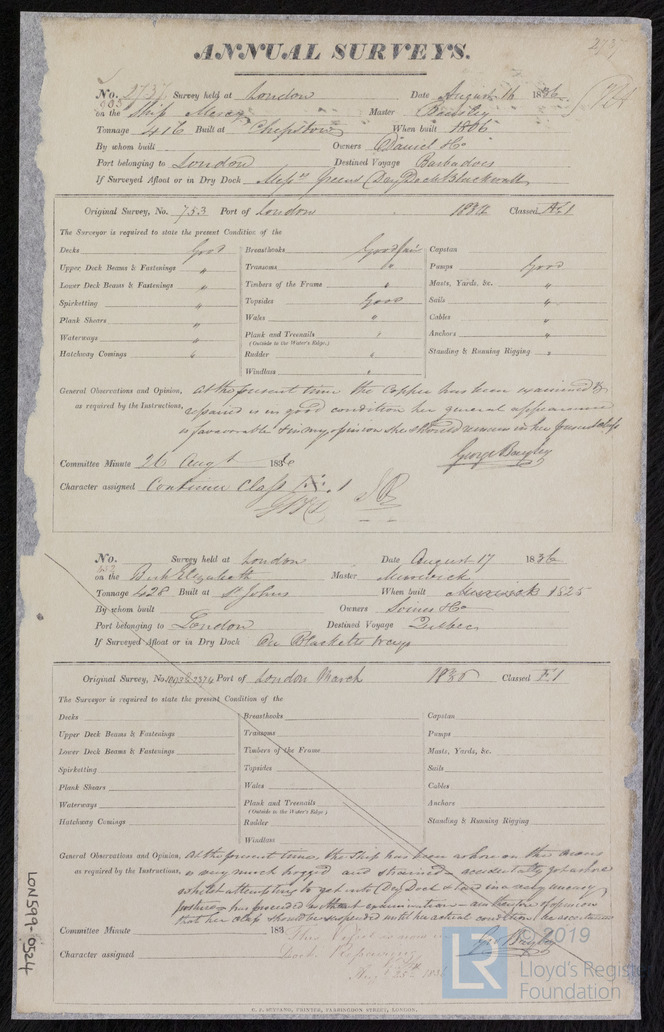 ANNUAL SURVEYS.
2737
No. 2737 Survey held at London Date August 16 1836
on the Ship Mercy Master
Tonnage 416 Built at Chepstow When built 1806
By whom built Owners Daniel & Co
Port belonging to London Destined Voyage Barbadoes
If Surveyed Afloat or in Dry Dock Mess rs Greens Dry Dock Blackwall
Original Survey, No. 753 Port of London 1834 Classed Æ 1
The Surveyor is required to state the present Condition of the
Decks Good Breasthooks Good fair Capstan
Upper Deck Beams & Fastenings " Transoms " Pumps Good
Lower Deck Beams & Fastenings " Timbers of the Frame " Masts, Yards, &c. "
Spirketting " Topsides Good Sails "
Plank Shears " Wales " Cables "
Waterways " Plank and Treenails " Anchors "
(Outside to the Water's Edge.)
Hatchway Comings " Rudder " Standing & Running Rigging "
Windlass "
General Observations and Opinion, At the present time the Copper has been examined &
as required by the Instructions, repaired is in good condition her general appearance
is favourable & in my opinion she should remain in her present class
George Bayley
Committee Minute 26 Augt 1836
Character assigned Continue Class Æ 1
No. Survey held at London Date August 17 1836
on the Bark Elizabeth Master
Tonnage 428 Built at St Johns When built 1825
By whom built Owners Somes & Co
Port belonging to London Destined Voyage Quebec
If Surveyed Afloat or in Dry Dock On Blacketts Ways
Original Survey, No. Port of London March 1836 Classed E 1
The Surveyor is required to state the present Condition of the
Decks Breasthooks Capstan
Upper Deck Beams & Fastenings Transoms Pumps
Lower Deck Beams & Fastenings Timbers of the Frame Masts, Yards, &c.
Spirketting Topsides Sails
Plank Shears Wales Cables
Waterways Plank and Treenails Anchors
(Outside to the Water's Edge.)
Hatchway Comings Rudder Standing & Running Rigging
Windlass
General Observations and Opinion, At the present time, the Ship has been ashore on the
as required by the Instructions, is very much hogged and strained accidentally got ashore
whilst attempting to get into Dry Dock & laid in a very uneasy
posture has proceeded without examination am therefore of opinion
that her class should be suspended until her actual condition be ascertained
Committee Minute 183 This Vessel is now in
Geo Bayley
Character assigned Dock Repairing
Augt 25th 1836
LON599-0524
© 2019
LR
Lloyd's Register
Foundation
C. F. SEYFANG, PRINTER, FARRINGDON STREET, LONDON.